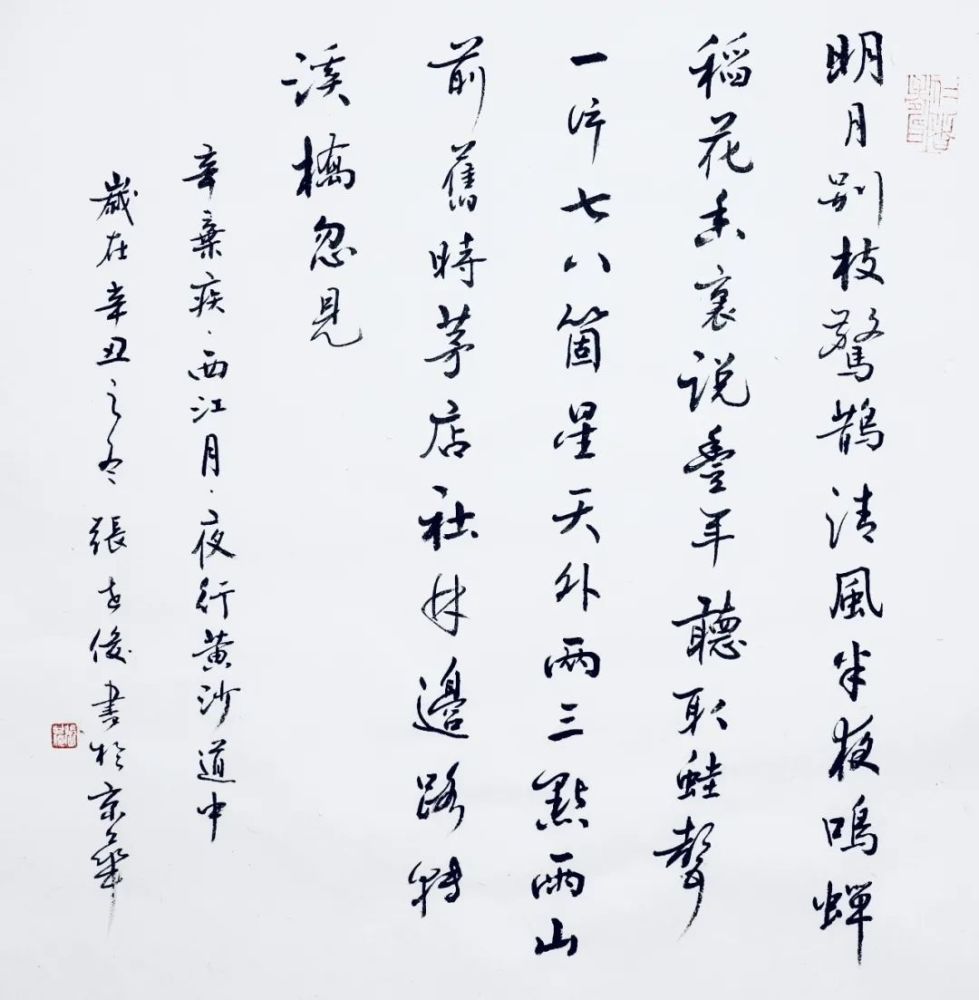 明月别枝驚鹊清風半夜鳴蝉
稻花香裏说豐年聽取蛙聲
一片七八箇星天外兩三點雨山
前舊時茅店社林邊路轉
溪橋忽見
辛棄疾·西江月·夜行黄沙道中
歲在辛丑之冬 張俊書於京華